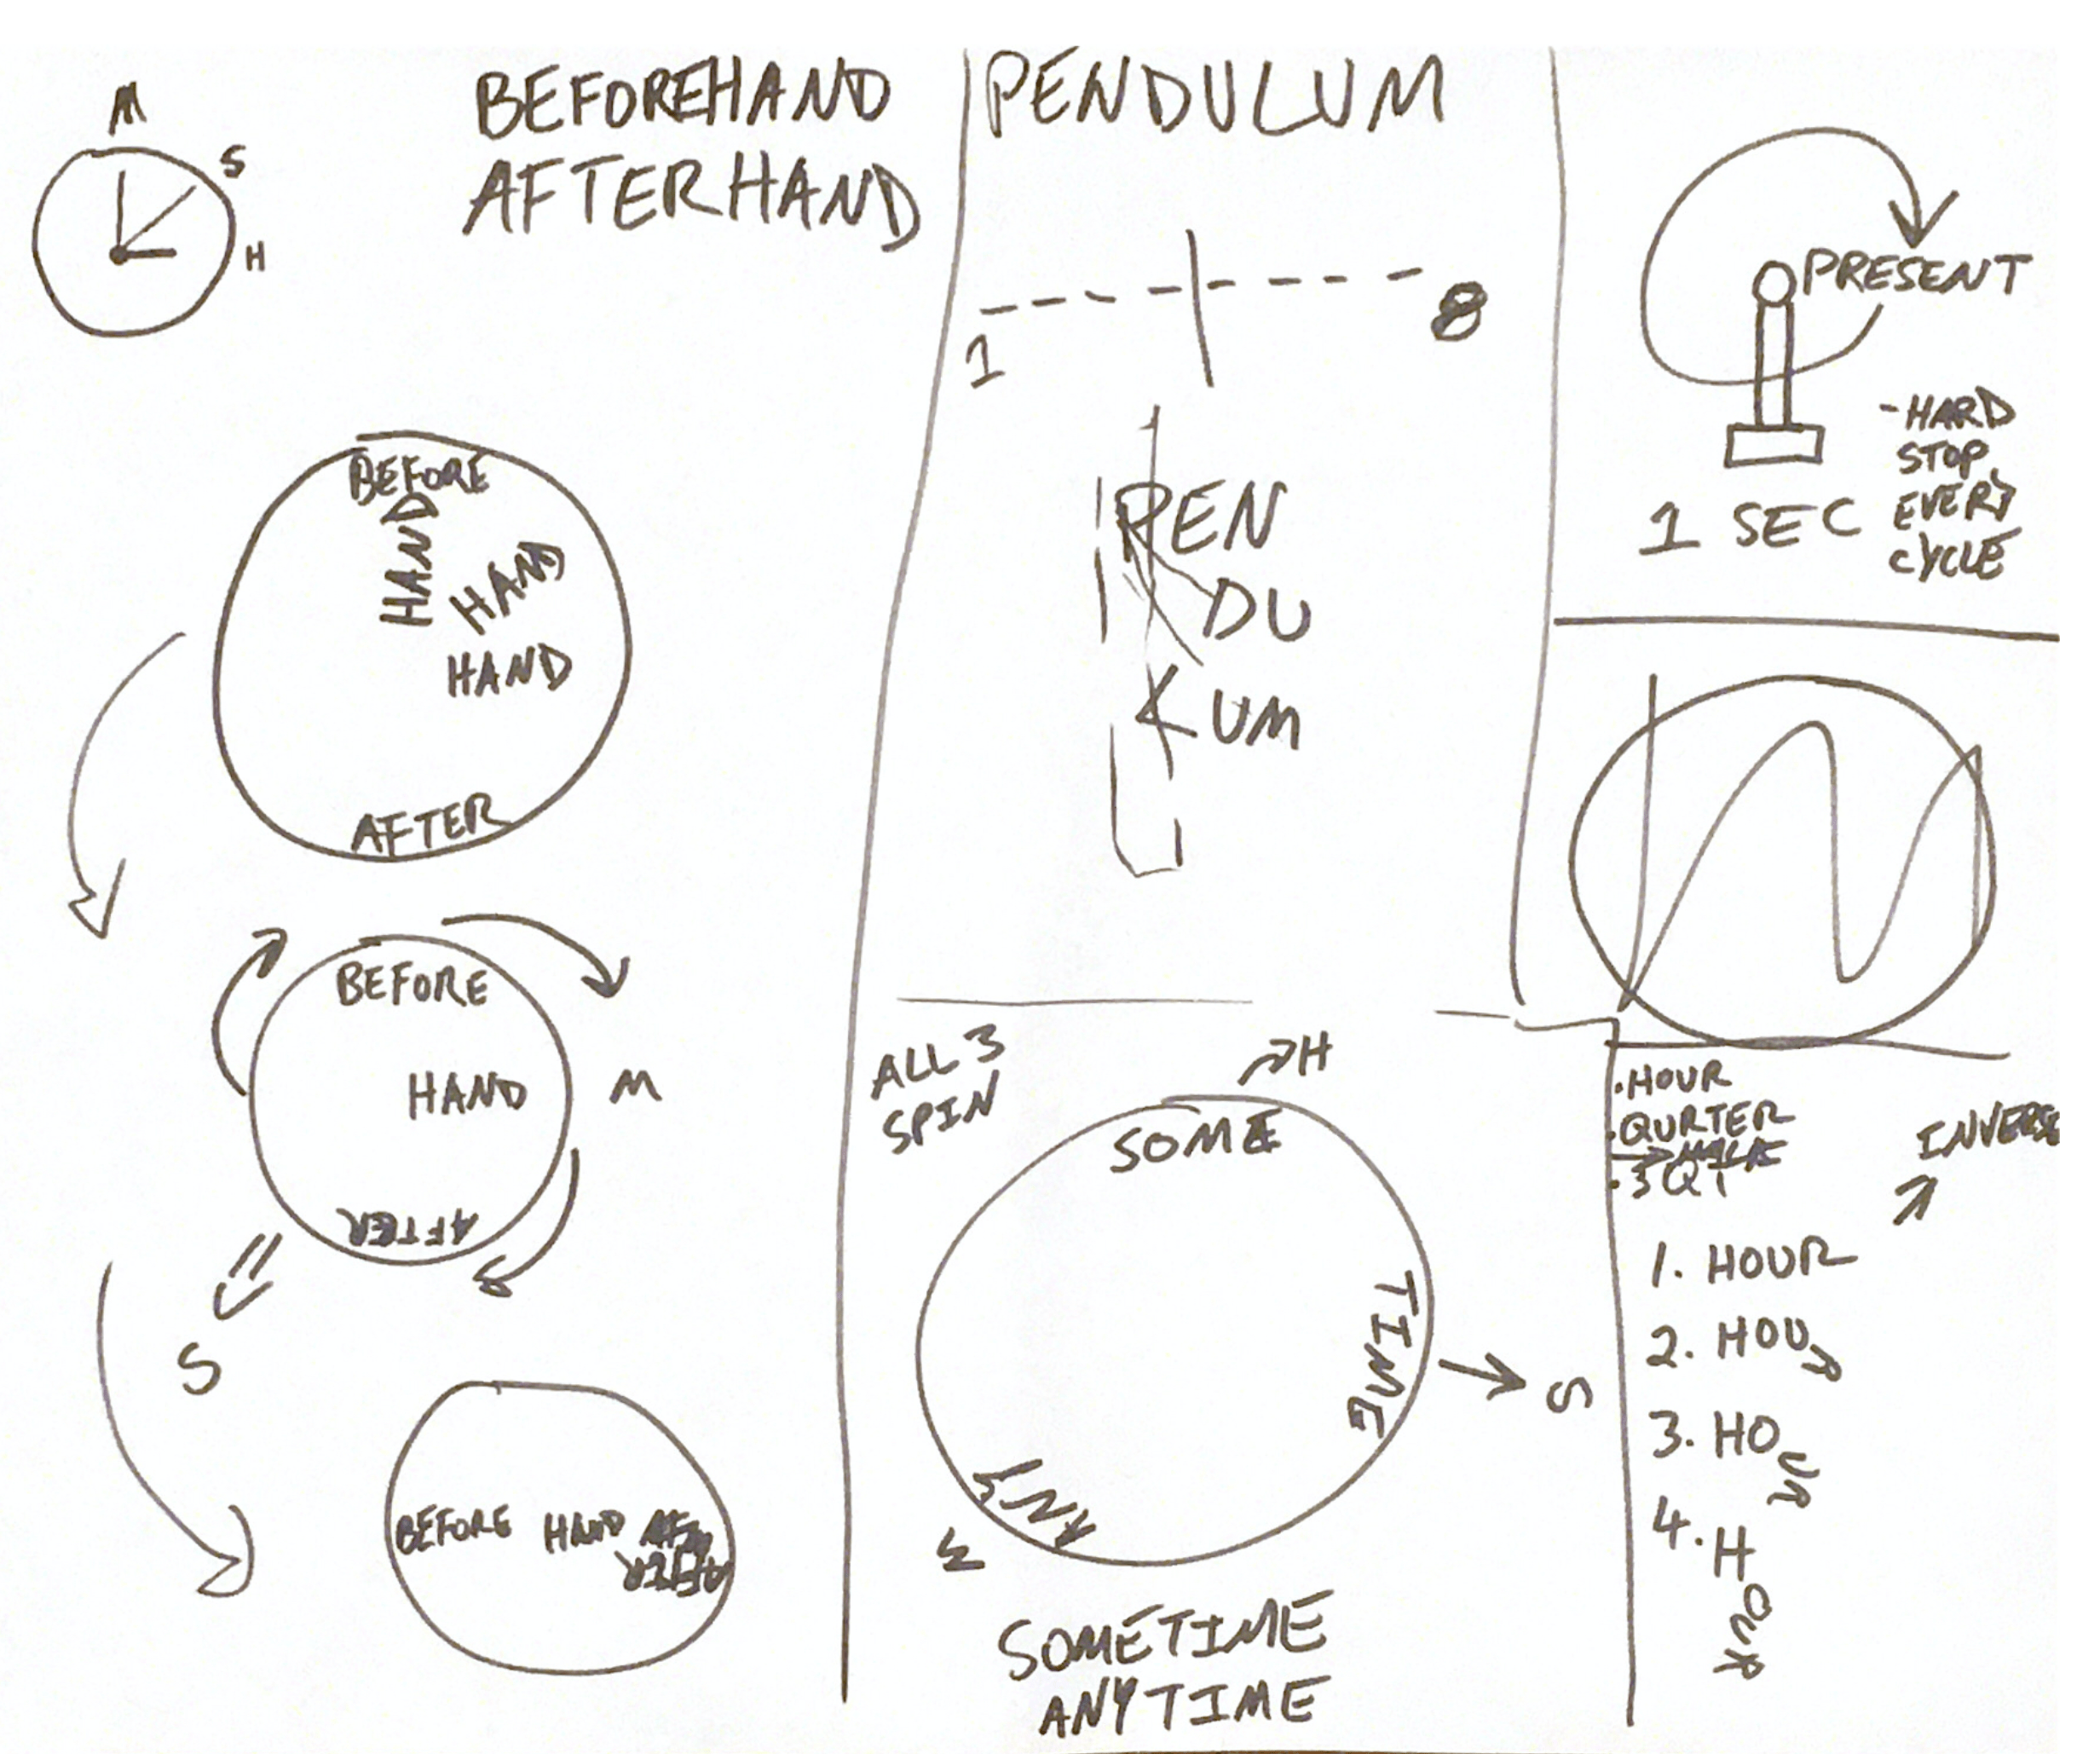 BEFOREHAND
AFTERHAND
M
S
H
BEFORE
HAND
HAND
HAND
AFTER
BEFORE
HAND
M
AFTER
S
BEFORE HAND
AFTER
PENDULUM
1
8
PEN
DU
LUM
ALL 3
SPIN
H
SOME
TIME
S
ANY
M
SOMETIME
ANYTIME
PRESENT
1 SEC
-HARD
STOP
EVERY
CYCLE
•HOUR
•QURTER
•3 QT
INVERSE
1. HOUR
2. HOUR
3. HOUR
4. HOUR